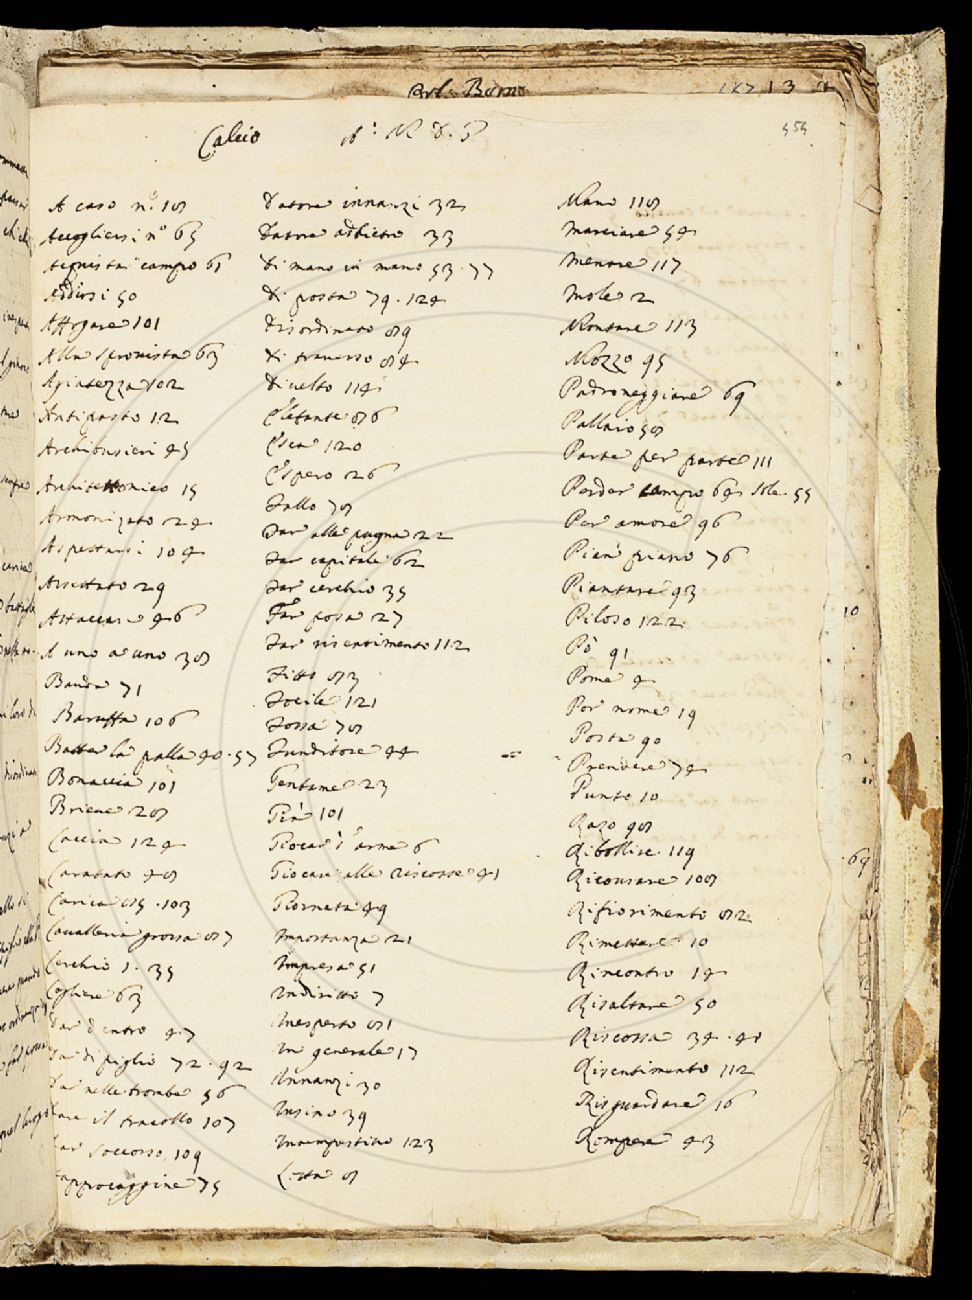 Calcio
A caso nº 108
Accogliersi nº 65
Aquistar campo 61
Addirsi 50
Affogare 101
Alla spronista 63
Agiatezza 102
Antipasto 12
Archibusieri 45
Architettonico 15
Armonizato 24
Aspettarsi 104
Assettato 29
Attaccar 46
A uno a uno 38
Banda 71
Baruffa 106
Batter la palla 40.57
Bonaccia 101
Briene 28
Caccia 124
Caratato 48
Carica 85.103
Cavalleria grossa 87
Cerchio 1.35
Cogliere 63
Dar dentro 47
Dar di piglio 72.92
nelle trombe 56
il tracollo 107
soccorso 109
75
Datore innanzi 32
Datore addietro 33
Di mano in mano 53.77
Di posta 79.124
Disordinato 89
Di traverso 84
Divelto 114
Elefante 86
Esca 120
Espero 26
Fallo 78
Far alle pugna 22
Far capitale 62
Far cerchio 35
Far posa 27
Far risentimento 112
Fitto 83
Focile 121
Fossa 78
Funditore 44
Gentame 23
Già 101
Giocar d'arme 6
Giocar alle riscosse 41
Giornata 49
Importanza 21
Impresa 51
Indiritto 7
Inesperto 81
In generale 17
Innanzi 30
Insino 39
Intempestivo 123
Lotta 8
Mano 118
Marciare 54
Menare 117
Mole 2
Montare 113
Mozzo 95
Padroneggiare 69
Pallaio 58
Parte per parte 111
Perder campo 64. 55
Per amore 96
Pian piano 76
Piantare 93
Piloso 122
Pò 91
Pome 4
Por nome 19
Posta 90
Prendere 74
Punto 10
Razo 98
Ribollire 119
Ricourare 108
Rifiorimento 82
Rimettere 10
Rincontro 14
Risaltare 50
Riscossa 34.41
Risentimento 112
Risguardare 16
Rompere 43